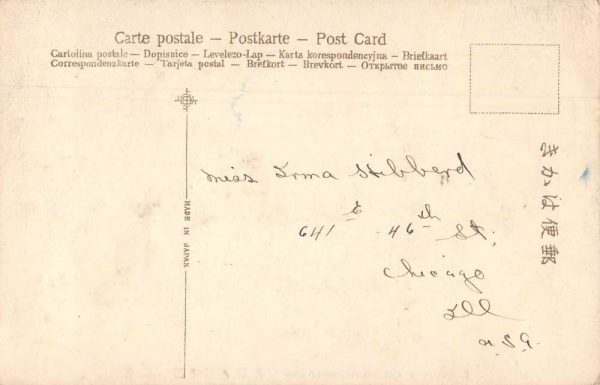 Carte postale — Postkarte — Post Card
Cartolina postale — Dopisnice — Levelezo-Lap — Karta korespondencyjna — Briefkaart
Correspondenzkarte — Tarjeta postal — Brefkort — Brevkort — Открытое письмо
Miss Irma Hibberd
641 E 46th St,
Chicago
Ill
U.S.A.
MADE IN JAPAN
きかは便郵